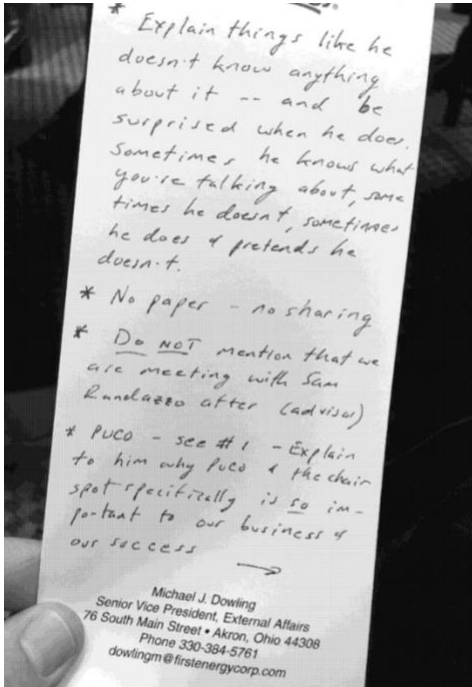 * Explain things like he
doesn't know anything
about it -- and be
surprised when he does.
Sometimes he knows what
you're talking about, some
times he doesn't, sometimes
he does & pretends he
doesn't.
* No paper - no sharing
* Do NOT mention that we
are meeting with Sam
Randazzo after (advisor)
* PUCO - see #1 - Explain
to him why PUCO & the chair
spot specifically is so im-
portant to our business &
our success
→
Michael J. Dowling
Senior Vice President, External Affairs
76 South Main Street • Akron, Ohio 44308
Phone 330-384-5761
dowlingm@firstenergycorp.com